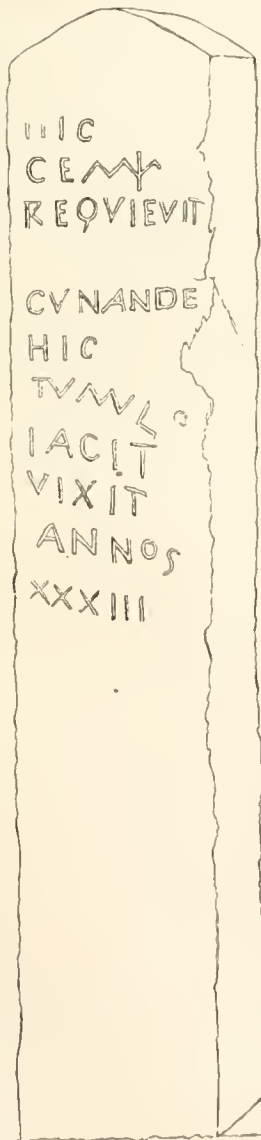 IIIC
REQVIEVIT
CVNANDE
HIC
TVMVLO
IACIT
VIXIT
ANNOS
XXXIII